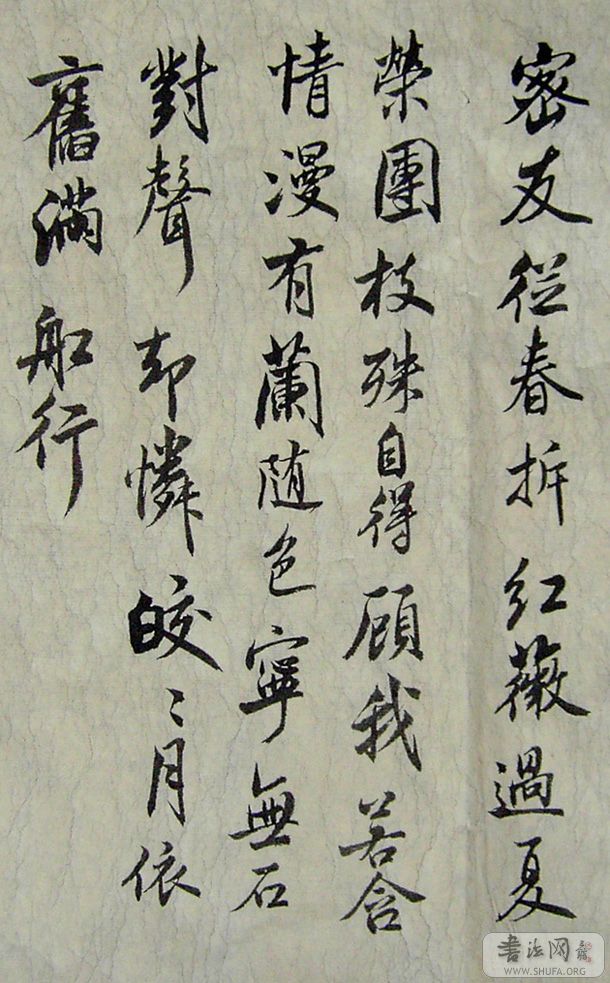 密友從春拆紅薇過夏
榮團枝殊自得顧我若含
情漫有蘭随色寧無石
對聲却憐皎〻月依
舊滿船行
書法网
WWW.SHUFA.ORG